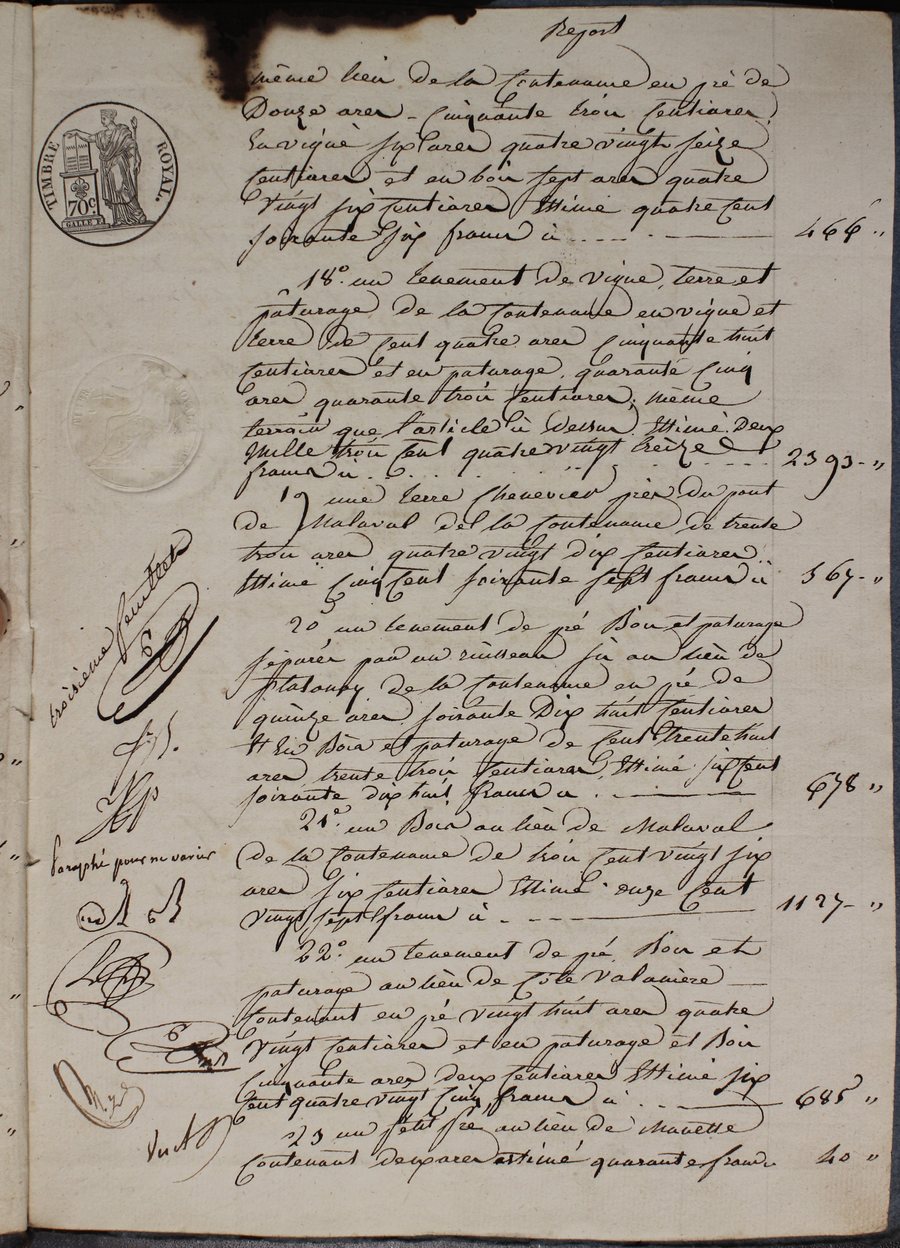 Report
TIMBRE ROYAL.
70c.
même lieu de la Contenance en pré de
Douze ares - Cinquante trois Centiares,
En vigne six ares quatre vingt seize
Centiares et en bois sept ares quatre
vingt six Centiares Estimé quatre Cent
soixante six francs ci 466 "
18° un tenement de vigne, terre et
pâturage de la Contenance en vigne et
terre de Cent quatre ares Cinquante huit
Centiares et en paturage, quarante Cinq
ares quarante trois Centiares, même
terroir que l'article ci dessus Estimé Deux
Mille trois Cent quatre vingt treize
francs ci 2393 - "
19 une terre Chenevier près du pont
de Malaval de la Contenance de trente
trois ares quatre vingt dix Centiares
Estimé Cinq Cent soixante sept francs ci 567 - "
20 un tenement de pré Bois et paturage
séparés par un ruisseau sis au lieu de
de la Contenance en pré de
quinze ares soixante Dix huit Centiares
Et En Bois et paturage de Cent trente huit
ares trente trois Centiares, Estimé six Cent
soixante dix huit francs ci 678 "
21° un Bois au lieu de Malaval
de la Contenance de trois Cent vingt six
ares six Centiares Estimé onze Cent
vingt sept francs ci 1127 - "
22° un tenement de pré, Bois et
paturage au lieu de Côte Valanière
Contenant en pré vingt huit ares quatre
vingt Centiares et en paturage et Bois
Cinquante ares deux Centiares Estimé six
Cent quatre vingt Cinq francs ci 685 "
23 un petit pré au lieu de Manette
Contenant deux ares estimé quarante francs 40 "
troisième feuillet
Paraphé pour ne varier